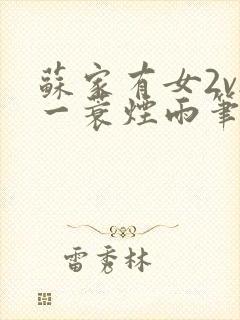 蘇家有女2v
一蓑煙雨筆
雷秀林